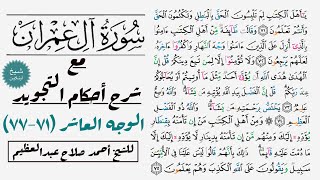 سورة آل عمران
مع
شرح أحكام التجويد
الوجه العاشر (٧١-٧٧)
للشيخ أحمد صلاح عبدالعظيم
يَٰٓأَهْلَ ٱلْكِتَٰبِ لِمَ تَلْبِسُونَ ٱلْحَقَّ بِٱلْبَٰطِلِ وَتَكْتُمُونَ ٱلْحَقَّ
وَأَنتُمْ تَعْلَمُونَ ٧١ وَقَالَت طَّآئِفَةٌ مِّنْ أَهْلِ ٱلْكِتَٰبِ ءَامِنُوا۟
بِٱلَّذِىٓ أُنزِلَ عَلَى ٱلَّذِينَ ءَامَنُوا۟ وَجْهَ ٱلنَّهَارِ وَٱكْفُرُوٓا۟ ءَاخِرَهُۥ
لَعَلَّهُمْ يَرْجِعُونَ ٧٢ وَلَا تُؤْمِنُوٓا۟ إِلَّا لِمَن تَبِعَ دِينَكُمْ قُلْ إِنَّ
ٱلْهُدَىٰ هُدَى ٱللَّهِ أَن يُؤْتَىٰٓ أَحَدٌ مِّثْلَ مَآ أُوتِيتُمْ أَوْ يُحَآجُّوكُمْ
عِندَ رَبِّكُمْ قُلْ إِنَّ ٱلْفَضْلَ بِيَدِ ٱللَّهِ يُؤْتِيهِ مَن يَشَآءُ وَٱللَّهُ
وَٰسِعٌ عَلِيمٌ ٧٣ يَخْتَصُّ بِرَحْمَتِهِۦ مَن يَشَآءُ وَٱللَّهُ ذُو ٱلْفَضْلِ
ٱلْعَظِيمِ ٧٤ ۞ وَمِنْ أَهْلِ ٱلْكِتَٰبِ مَنْ إِن تَأْمَنْهُ بِقِنطَارٍ يُؤَدِّهِۦٓ
إِلَيْكَ وَمِنْهُم مَّنْ إِن تَأْمَنْهُ بِدِينَارٍ لَّا يُؤَدِّهِۦٓ إِلَيْكَ إِلَّا
مَا دُمْتَ عَلَيْهِ قَآئِمًا ذَٰلِكَ بِأَنَّهُمْ قَالُوا۟ لَيْسَ عَلَيْنَا فِى ٱلْأُمِّيِّۦنَ
سَبِيلٌ وَيَقُولُونَ عَلَى ٱللَّهِ ٱلْكَذِبَ وَهُمْ يَعْلَمُونَ ٧٥